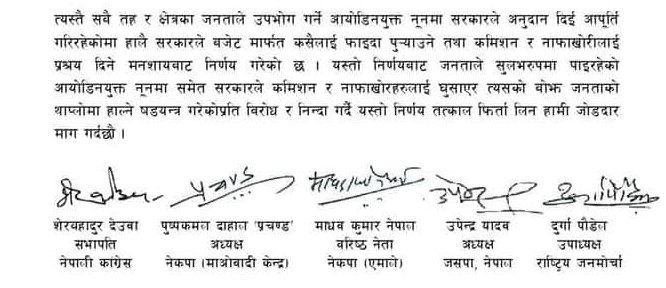 त्यस्तै सबै तह र क्षेत्रका जनताले उपभोग गर्ने आयोडिनयुक्त नूनमा सरकारले अनुदान दिई आपूर्ति
गरिरहेकोमा हालै सरकारले बजेट मार्फत कसैलाई फाइदा पुर्‍याउने तथा कमिशन र नाफाखोरीलाई
प्रश्रय दिने मनशायबाट निर्णय गरेको छ । यस्तो निर्णयबाट जनताले सुलभरुपमा पाइरहेको
आयोडिनयुक्त नूनमा समेत सरकारले कमिशन र नाफाखोरहरुलाई घुसाएर त्यसको बोझ जनताको
थाप्लोमा हाल्ने षडयन्त्र गरेकोप्रति विरोध र निन्दा गर्दै यस्तो निर्णय तत्काल फिर्ता लिन हामी जोडदार
माग गर्दछौ ।
शेरबहादुर देउवा पुष्पकमल दाहाल 'प्रचण्ड' माधव कुमार नेपाल उपेन्द्र यादव दुर्गा पौडेल
सभापति अध्यक्ष वरिष्ठ नेता अध्यक्ष उपाध्यक्ष
नेपाली कांग्रेस नेकपा (माओवादी केन्द्र) नेकपा (एमाले) जसपा, नेपाल राष्ट्रिय जनमोर्चा